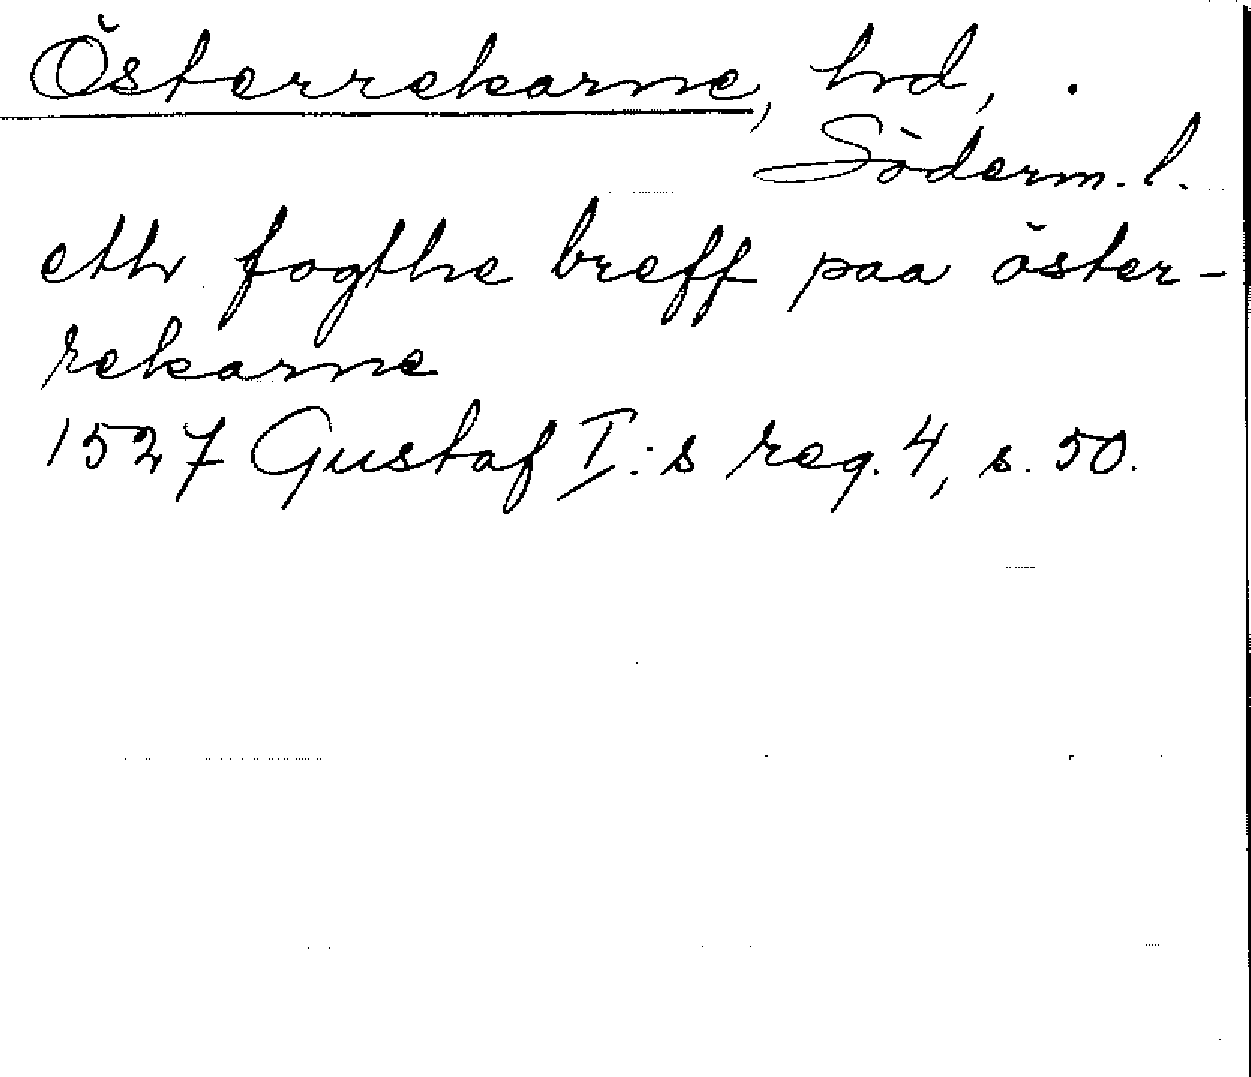 Österrekarne, hd,
Söderm. l.
etth fogthe breff paa öster-
rekarne
1527 Gustaf I:s reg. 4, s. 50.